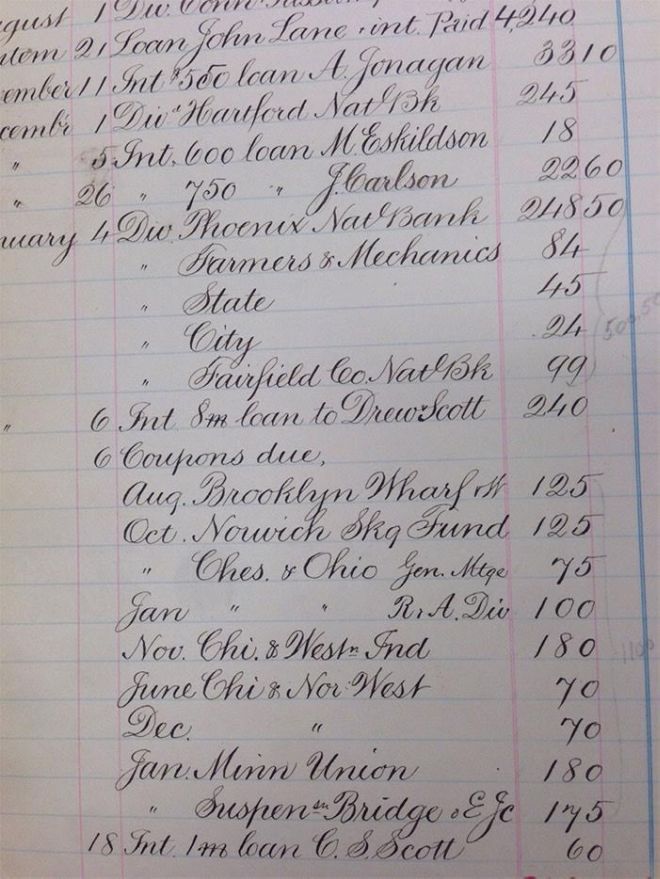 1 Div. Conn
21 Loan John Lane & int. Paid 4,240
11 Int $550 loan A. Jonagan 33 10
1 Div. Hartford Natl Bk 245
" 5 Int. 600 loan M. Eskildson 18
" 26 " 750 " J. Carlson 22 60
nuary 4 Div. Phoenix Natl Bank 248 50
" Farmers & Mechanics 84
" State 45
" City 24
" Fairfield Co. Natl Bk 99
" 6 Int 8m loan to Drew Scott 240
6 Coupons due,
Aug. Brooklyn Wharf & W 125
Oct. Norwich Skg Fund 125
" Ches. & Ohio Gen. Mtge 75
Jan " " R. & A. Div 100
Nov. Chi. & Westn Ind 180
June Chi & Nor. West 70
Dec. " 70
Jan. Minn Union 180
" Suspensn Bridge & E Jc 175
18 Int. 1m loan C. S. Scott 60